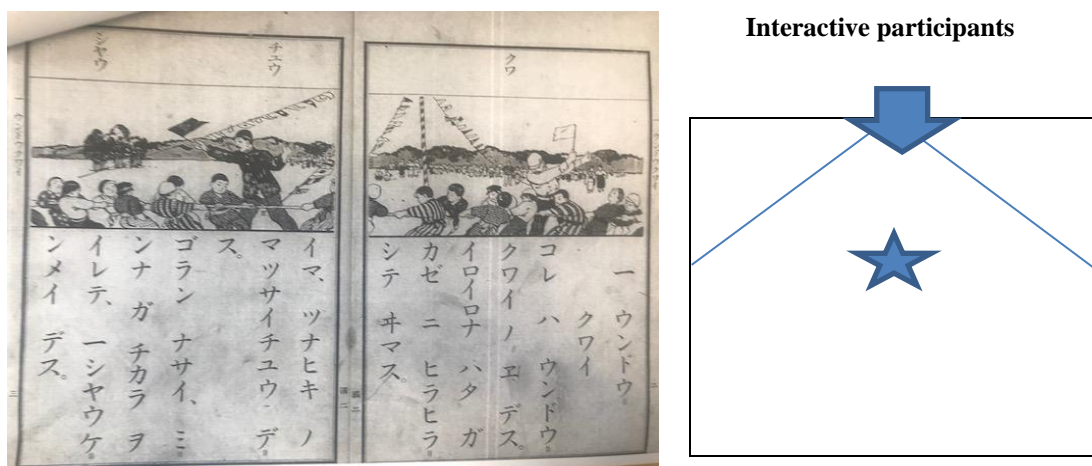 クワ
一 ウンドウ
クワイ
コレ ハ ウンドウ
クワイ ノ ヱ デス。
イロイロナ ハタ ガ
カゼ ニ ヒラヒラ
シテ ヰマス。
チユウ
シヤウ
イマ、 ツナヒキ ノ
マツサイチユウ デ
ス。
ゴラン ナサイ、 ミ
ンナ ガ チカラ ヲ
イレテ、 一シヤウケ
ンメイ デス。
三
Interactive participants